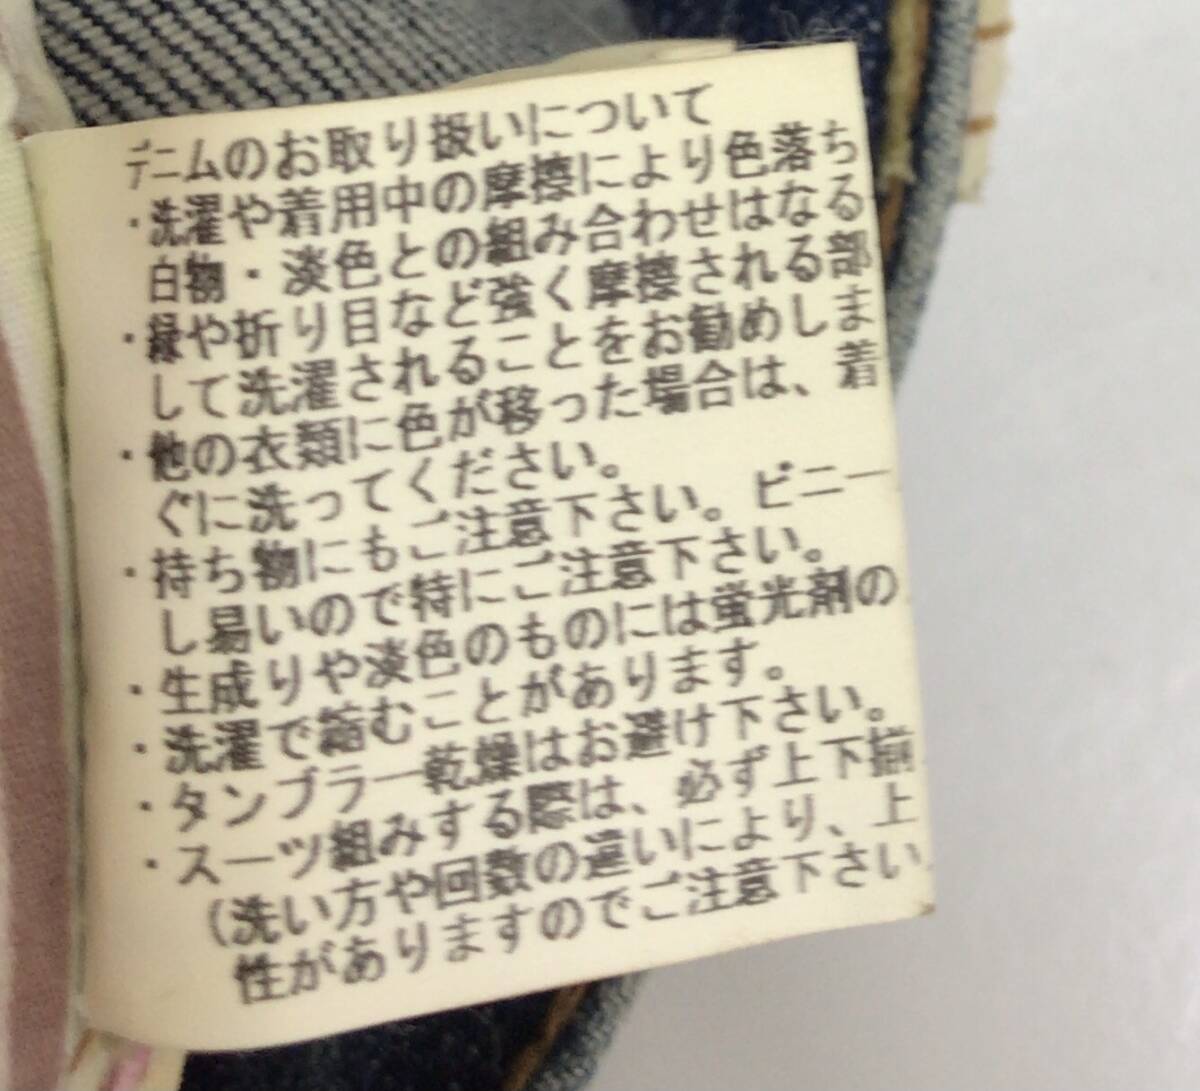 デニムのお取り扱いについて
・洗濯や着用中の摩擦により色落ち
白物・淡色との組み合わせはなる
・縁や折り目など強く摩擦される部
して洗濯されることをお勧めしま
・他の衣類に色が移った場合は、着
ぐに洗ってください。
・持ち物にもご注意下さい。ビニー
し易いので特にご注意下さい。
・生成りや淡色のものには蛍光剤の
・洗濯で縮むことがあります。
・タンブラー乾燥はお避け下さい。
・スーツ組みする際は、必ず上下揃
(洗い方や回数の違いにより、上
性がありますのでご注意下さい